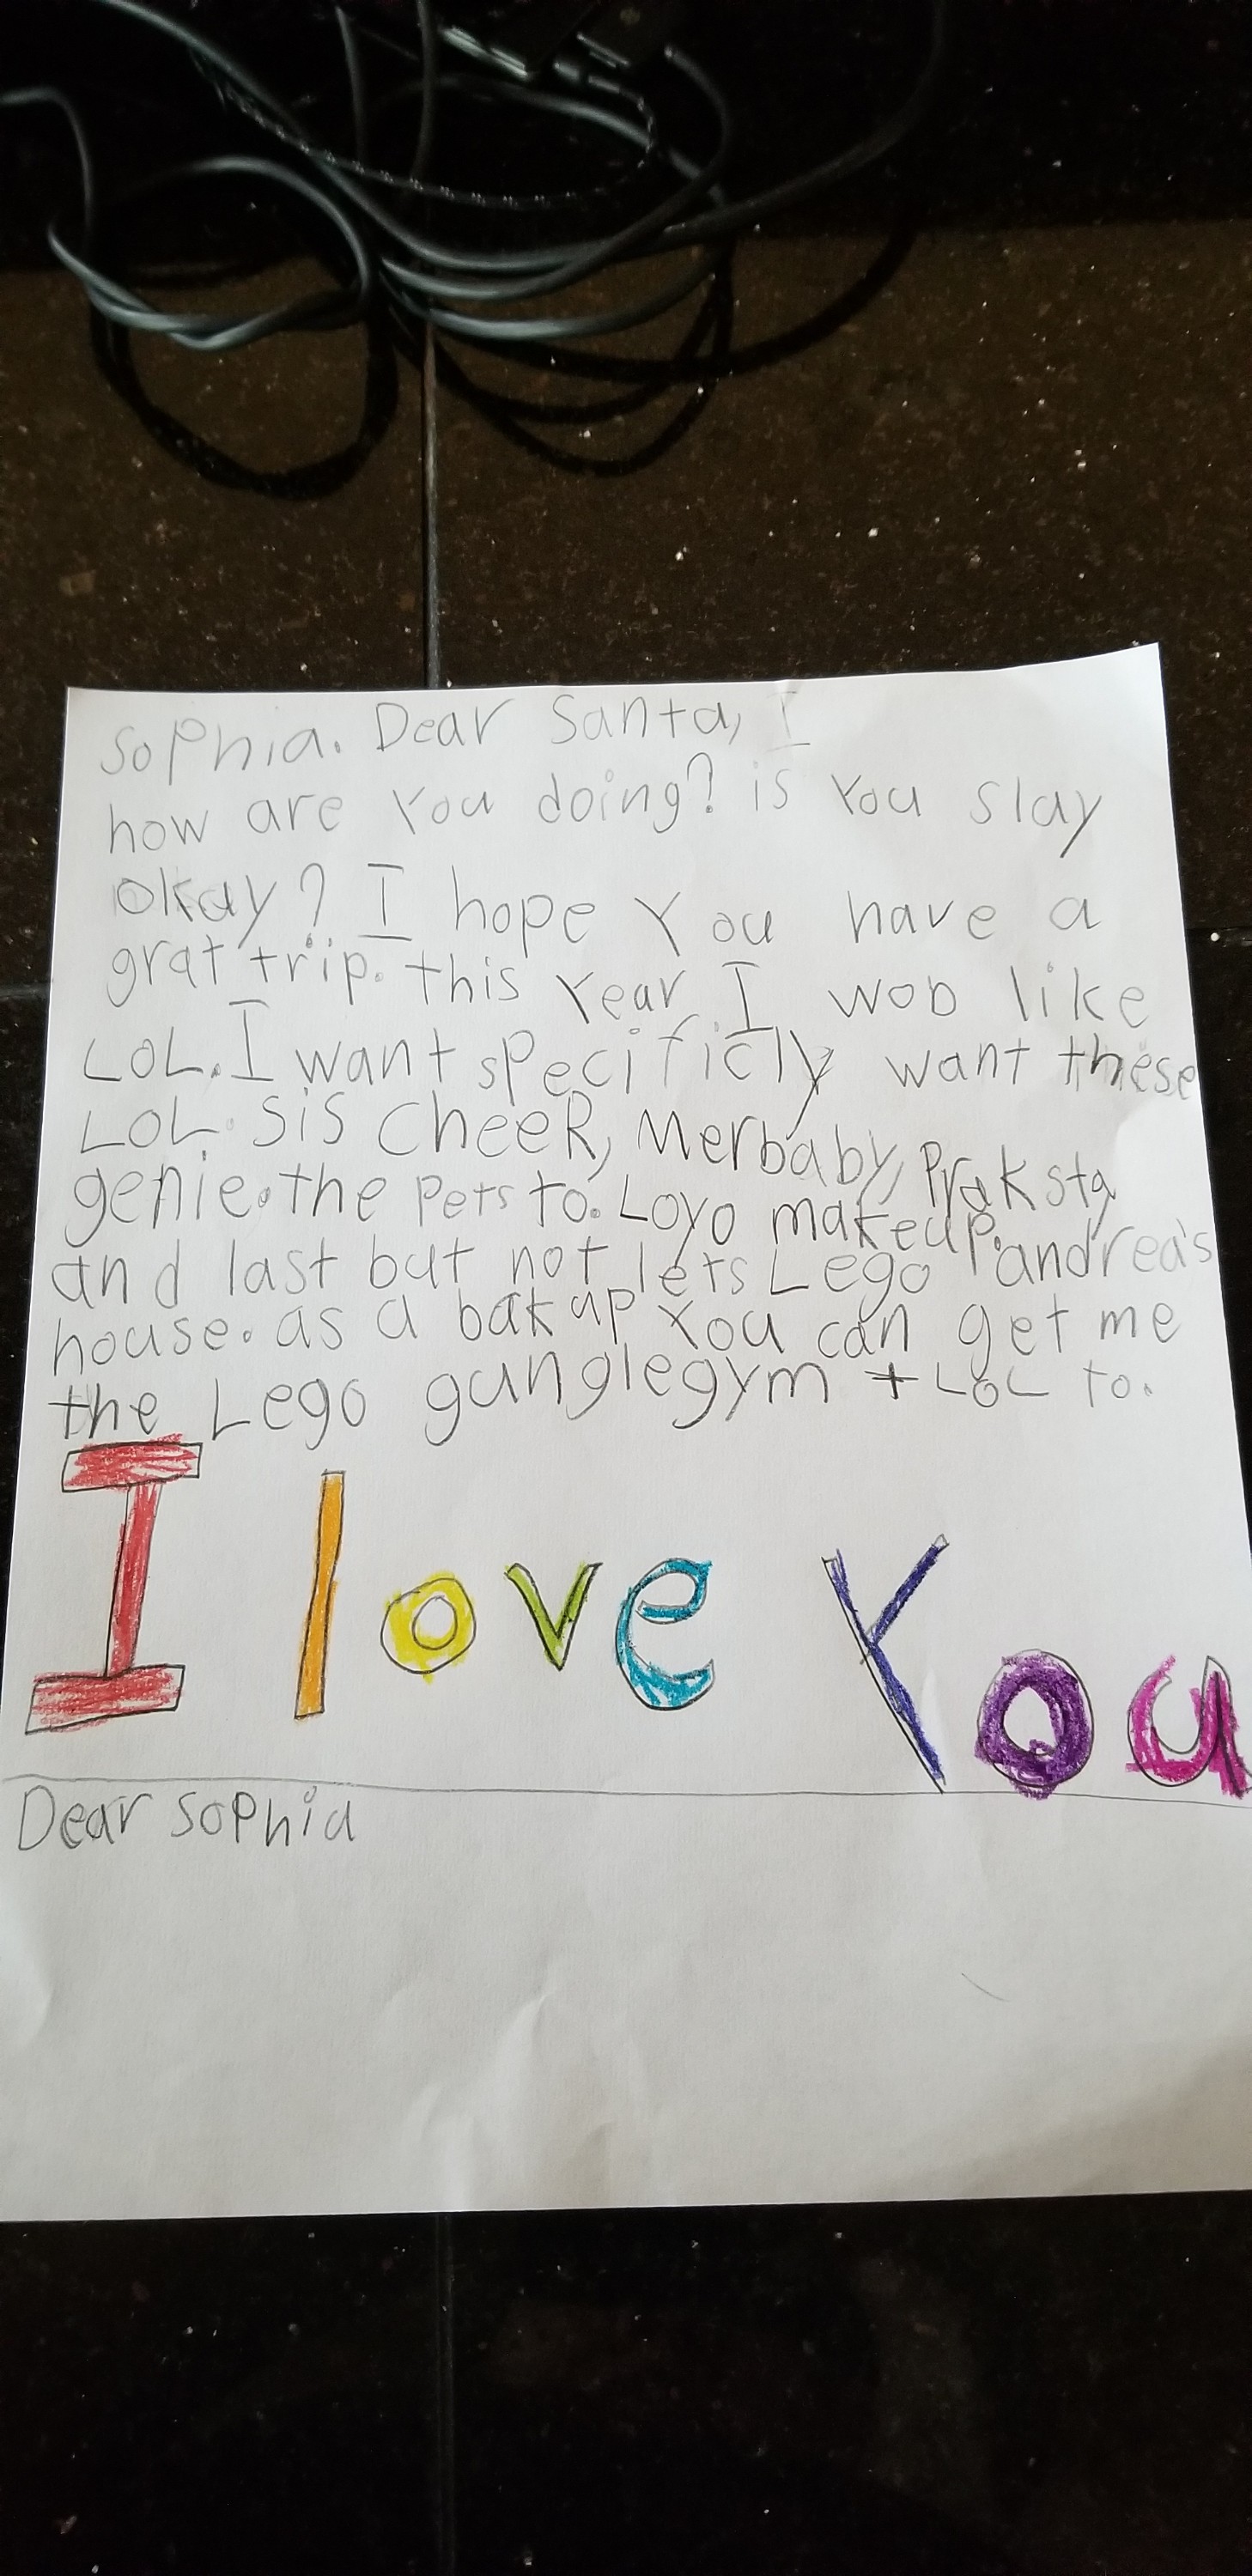 Sophia. Dear Santa, I
how are You doing? is You slay
Okay? I hope You have a
grat trip. this Year I wob like
LOL. I want specificly want these
LOL. Sis CheeR, Merbaby, Praksta
genie. the Pets to. Loyo makeup.
and last but not lets Lego andrea's
house. as a bakup You can get me
the Lego gunglegym + LOL to.
I love You
Dear Sophia